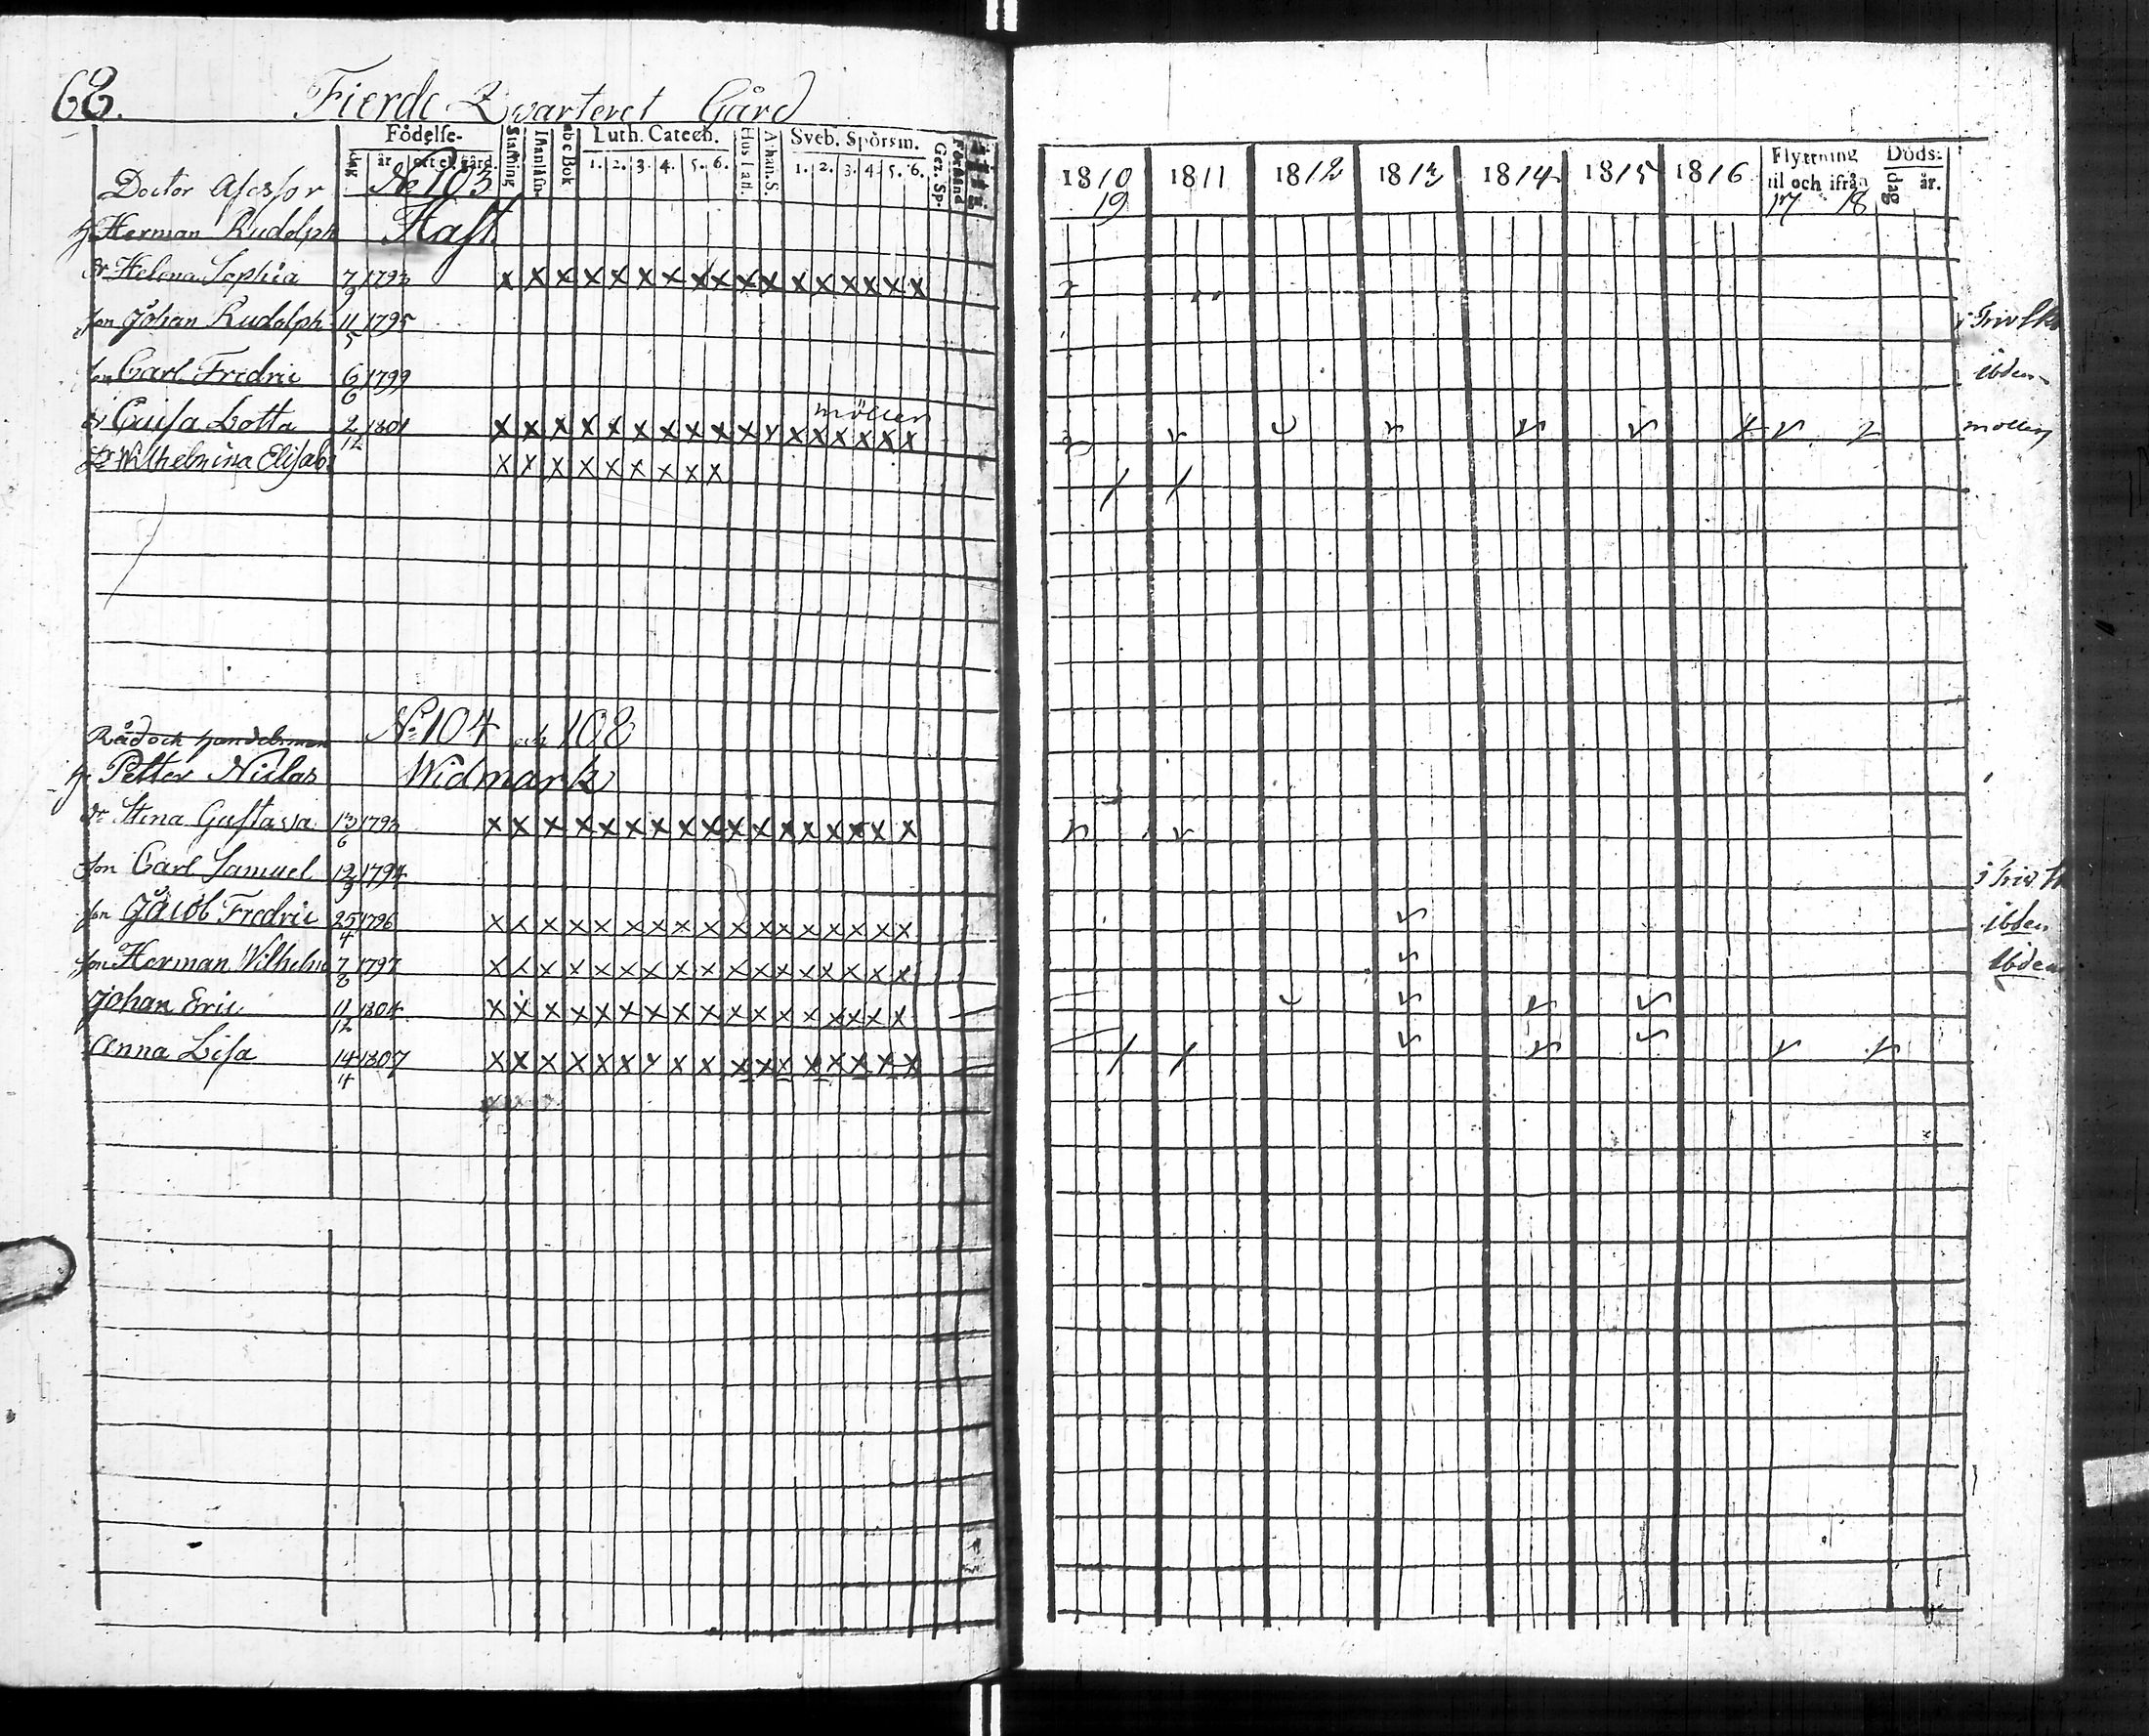 68.
Fierde Qvarteret Gård
Fôdelse-
dag år ort el. gård.
Stafning
Innanläsn.
abc Bok
Luth. Catech.
1. 2. 3. 4. 5. 6.
Hus Tafl.
Athan. S.
Sveb. Spörsm.
1. 2. 3. 4. 5. 6.
Ger. Sp.
Förstånd
Doctor Asessor
No 103
H. Herman Rudolph Hast
dr Helena Sophia 7/9 1793 x x x x x x x x x x x x x x x x x
son Johan Rudolph 11/5 1795
son Carl Fredric 6/6 1799
möller
dr Caisa Lotta 2/12 1801 x x x x x x x x x x x x x x x x x
Dr Wilhelmina Elisab. x x x x x x x x x
Råd och handelsman
No 104 och 108
H. Petter Niclas Widmark
dr Stina Gustava 13/6 1793 x x x x x x x x x x x x x x x x x
son Carl Samuel 12/9 1794
son Jacob Fredric 25/4 1796 x x x x x x x x x x x x x x x x x
son Herman Wilhelm 7/8 1797 x x x x x x x x x x x x x x x x x
Johan Eric 11/12 1804 x x x x x x x x x x x x x x x x x
Anna Lisa 14/4 1807 x x x x x x x x x x x x x x x x x
1810 1811 1812 1813 1814 1815 1816
19
Flyttning
til och ifrån
17 18
Döds-
dag år.
i Triv
ibdem
möller
i triv
ibdem
ibdem